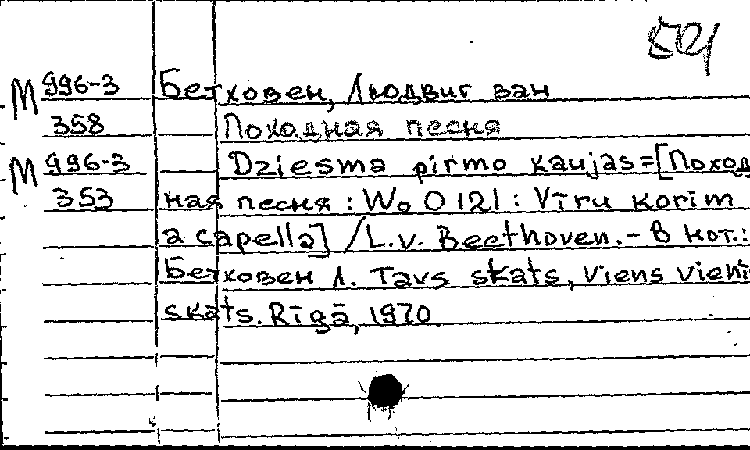 521
М 996-3 Бетховен, Людвиг ван
358 Походная песня
М 996-3 Dziesma pirmo kaujas=[Поход
353 ная песня : Wo O 121 : Vīru korim
a capella] / L.v. Beethoven. - В кот.:
Бетховен Л. Tavs skats, viens vienī
skats. Rīgā, 1970.